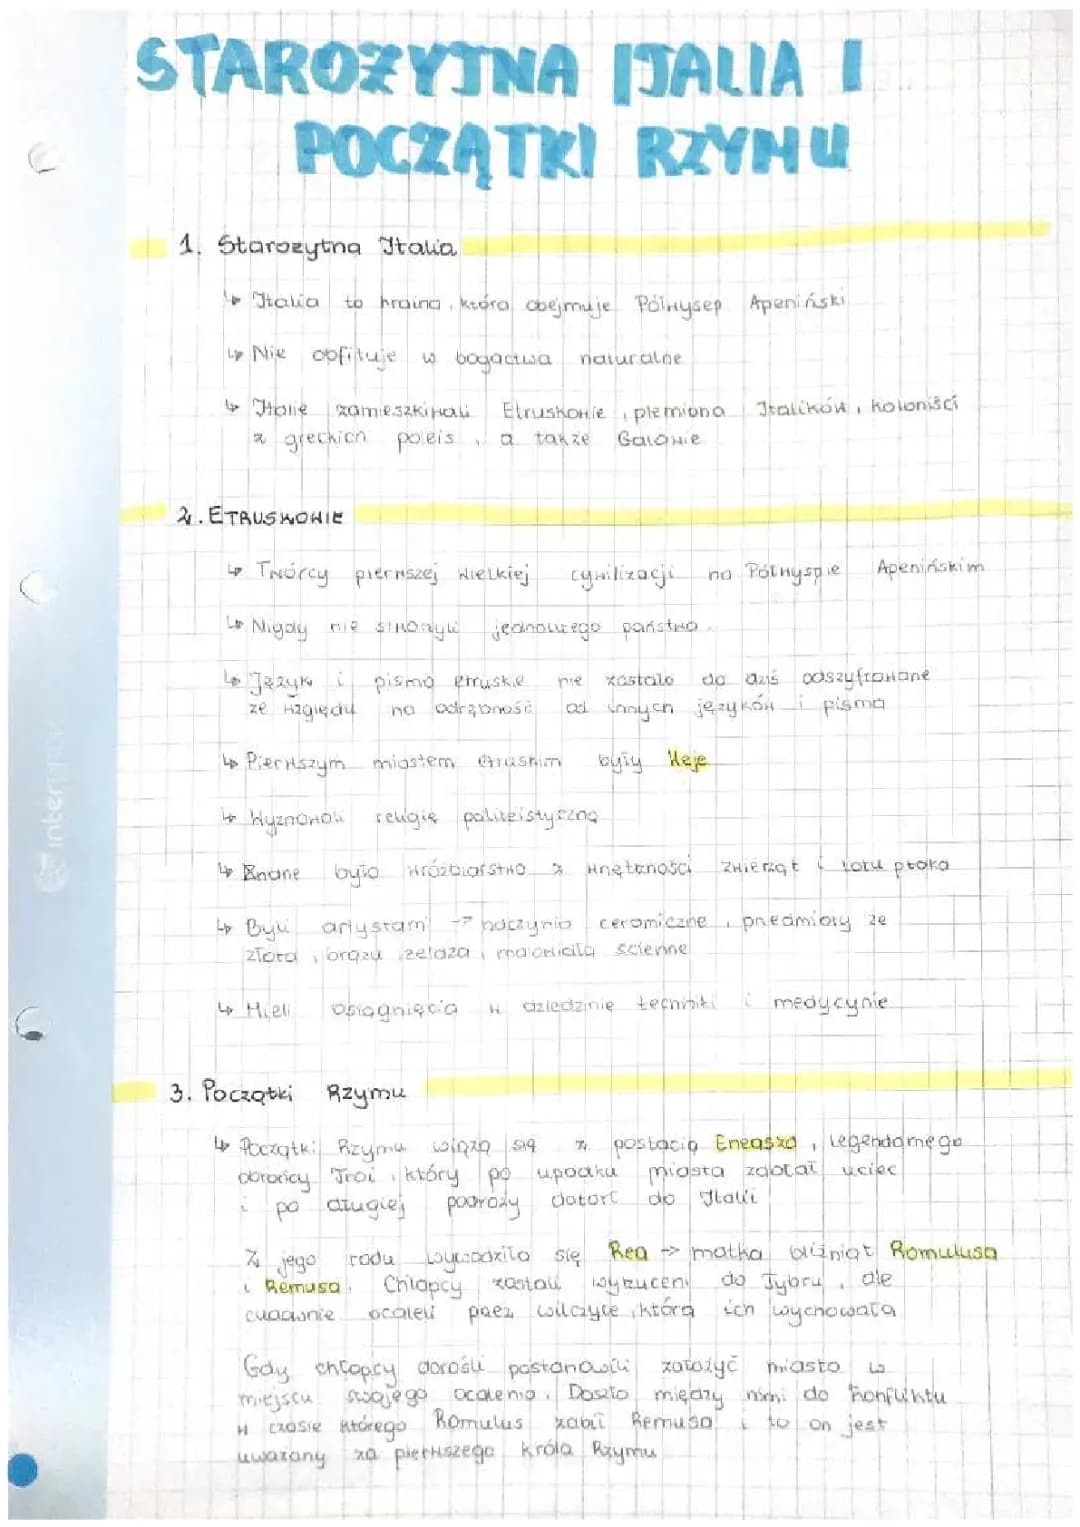 STAROŻYTNA ITALIA I
POCZĄTKI RZYMU
1. Starożytna Italia
↳ Italia to kraina, która obejmuje Półwysep Apeniński
↳ Nie opfituje w bogactwa naturalne
↳ Italię zamieszkiwali Etruskowie, plemiona Italików, koloniści
z greckich poleis, a także Galowie
2. ETRUSKOWIE
↳ Twórcy pierwszej wielkiej cywilizacji na Półwyspie Apenińskim
↳ Nigdy nie stworzyli jednolitego państwa.
↳ Język i pismo etruskie nie zostało do dziś odszyfrowane
ze względu na odrębność od innych języków i pisma
↳ Pierwszym miastem etruskim były Weje
↳ Wyznawali religię politeistyczną
↳ Znane było wróżbiarstwo z wnętrzności zwierząt i lotu ptaka
↳ Byli artystami → naczynia ceramiczne, przedmioty ze
złota, brązu, żelaza, malowidła ścienne
↳ Mieli osiągnięcia w dziedzinie techniki i medycynie
3. Początki Rzymu
↳ Początki Rzymu wiążą się z postacią Eneasza, legendarnego
obrońcy Troi, który po upadku miasta zdołał uciec
i po długiej podróży dotarł do Italii
Z jego rodu wywodziła się Rea → matka bliźniąt Romulusa
i Remusa. Chłopcy zostali wyrzuceni do Tybru, ale
cudownie ocaleli przez wilczycę, która ich wychowała
Gdy chłopcy dorośli postanowili założyć miasto w
miejscu swojego ocalenia. Doszło między nimi do konfliktu
w czasie którego Romulus zabił Remusa i to on jest
uważany za pierwszego króla Rzymu